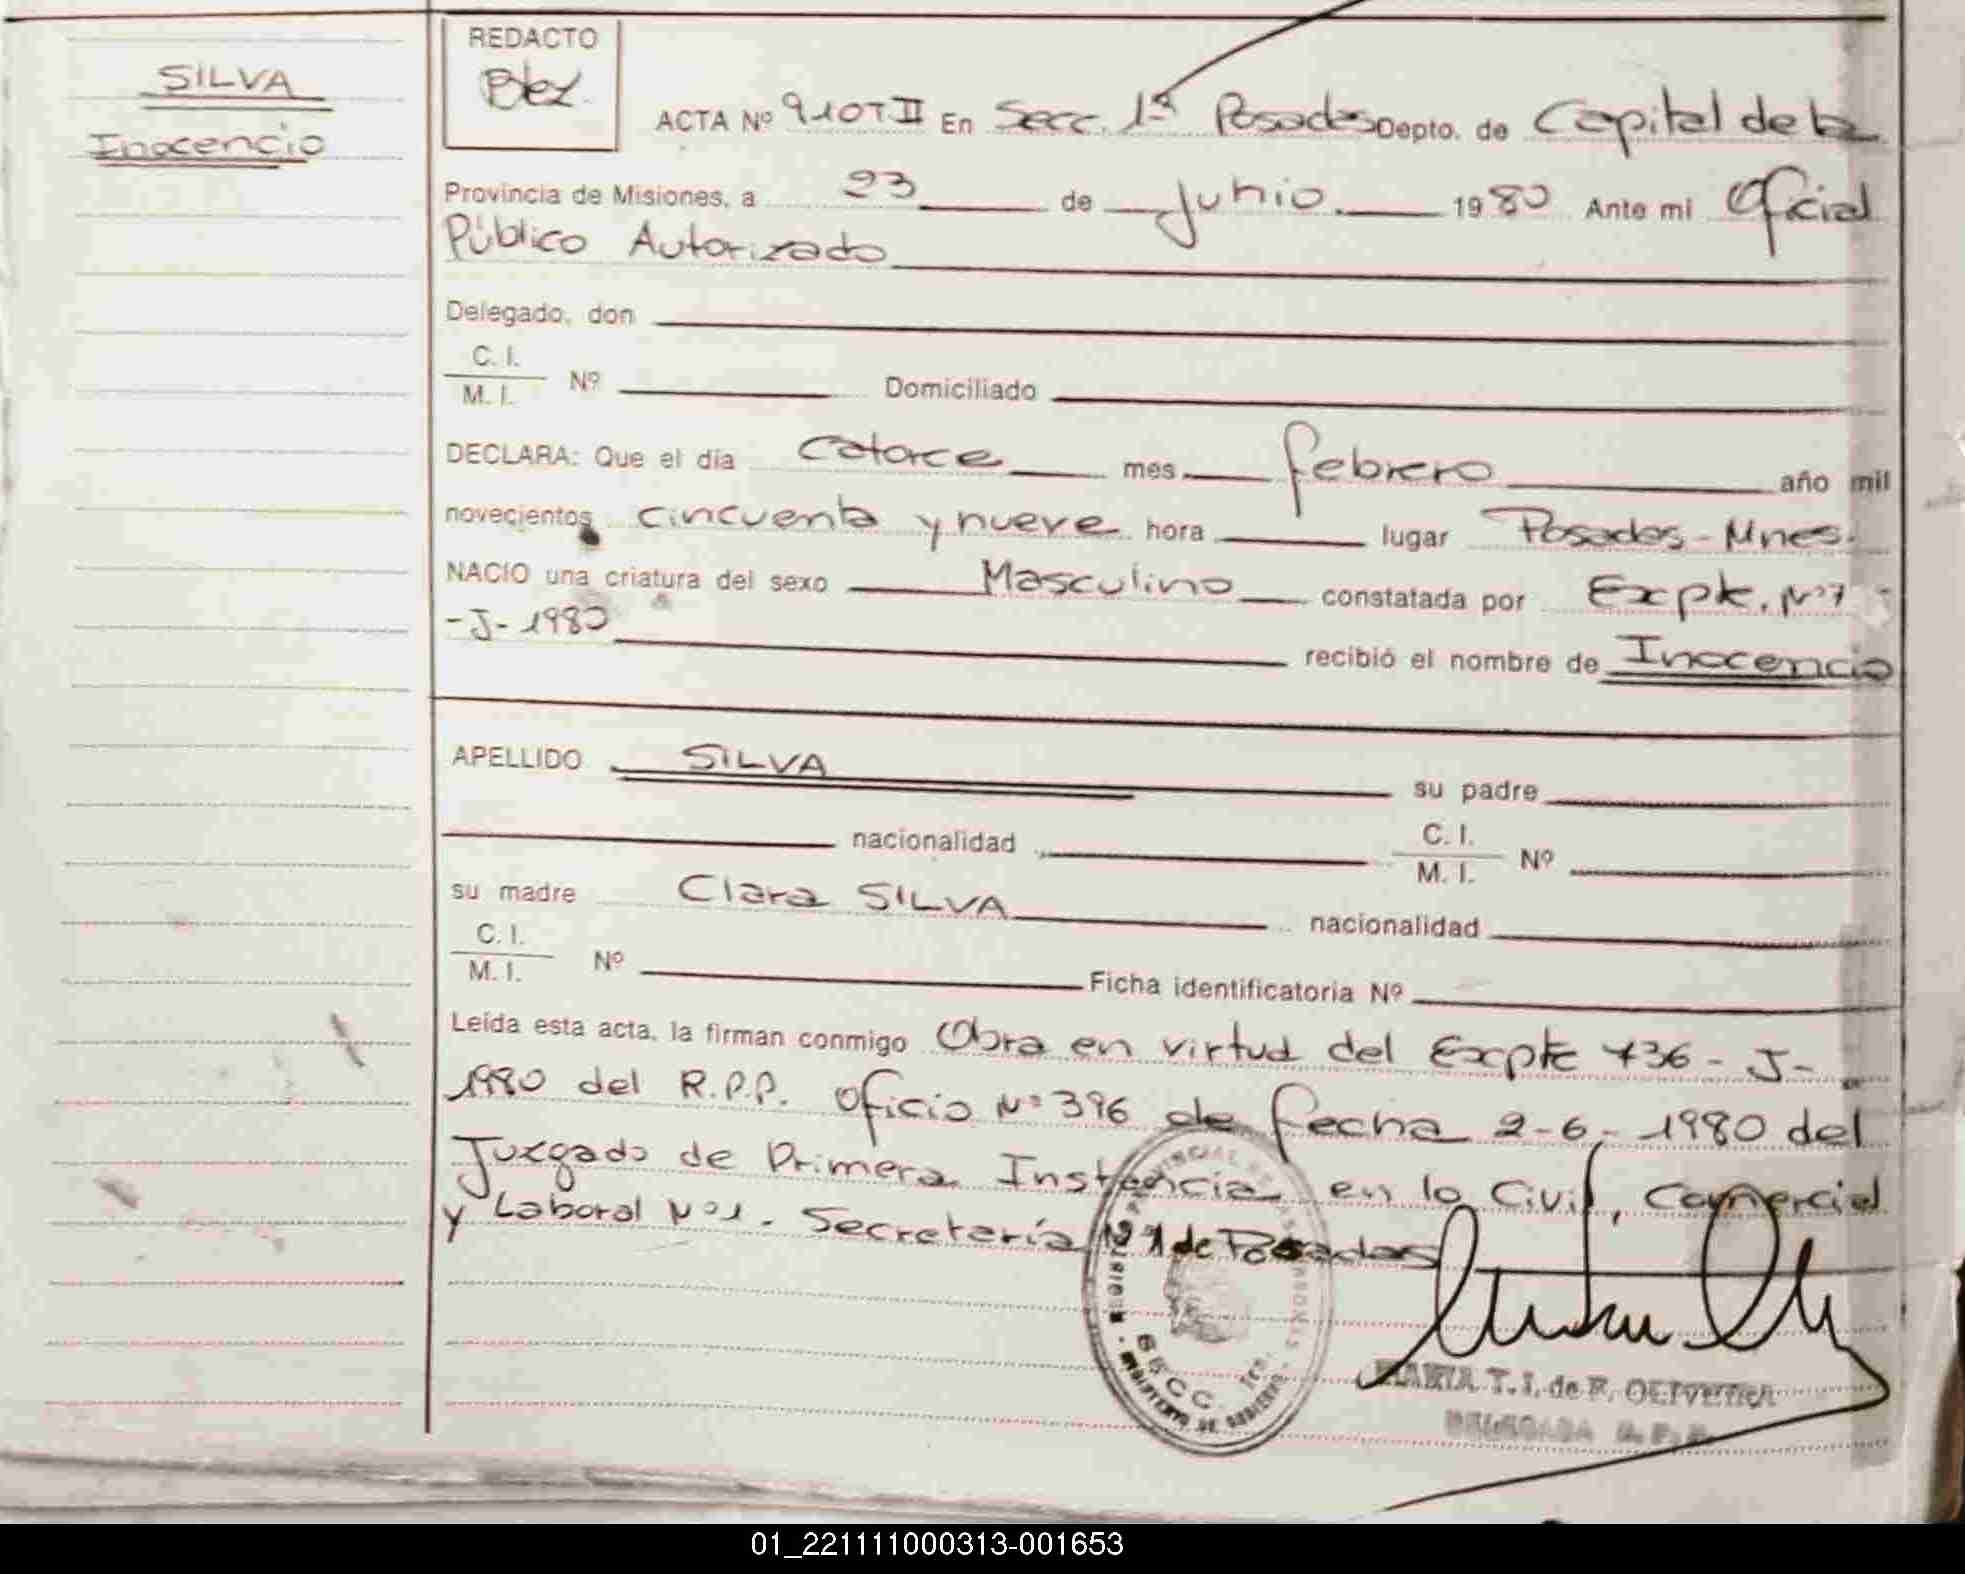 SILVA
Inocencio
REDACTO
ACTA Nº 910T II En Secc. 1ª Posadas Depto. de Capital de la
Provincia de Misiones, a 23 de Junio. 1980 Ante mi Oficial
Público Autorizado
Delegado, don
C. I.
M. I. Nº Domiciliado
DECLARA: Que el día catorce mes febrero año mil
novecientos cincuenta y nueve hora lugar Posadas - Mnes.
NACIO una criatura del sexo Masculino constatada por Expte. Nº 7
-J- 1980 recibió el nombre de Inocencio
APELLIDO SILVA su padre
nacionalidad C. I. M. I. Nº
su madre Clara SILVA nacionalidad
C. I.
M. I. Nº Ficha identificatoria Nº
Leída esta acta, la firman conmigo Obra en virtud del Expte 736 - J-
1980 del R.P.P. Oficio Nº 396 de fecha 2-6-1980 del
Juzgado de Primera Instancia en lo Civil, Comercial
y Laboral Nº 1. Secretaría Nº 1 de Posadas
SECC.
MARIA T. I. de R.
DELEGADA R. P. P.
01_221111000313-001653